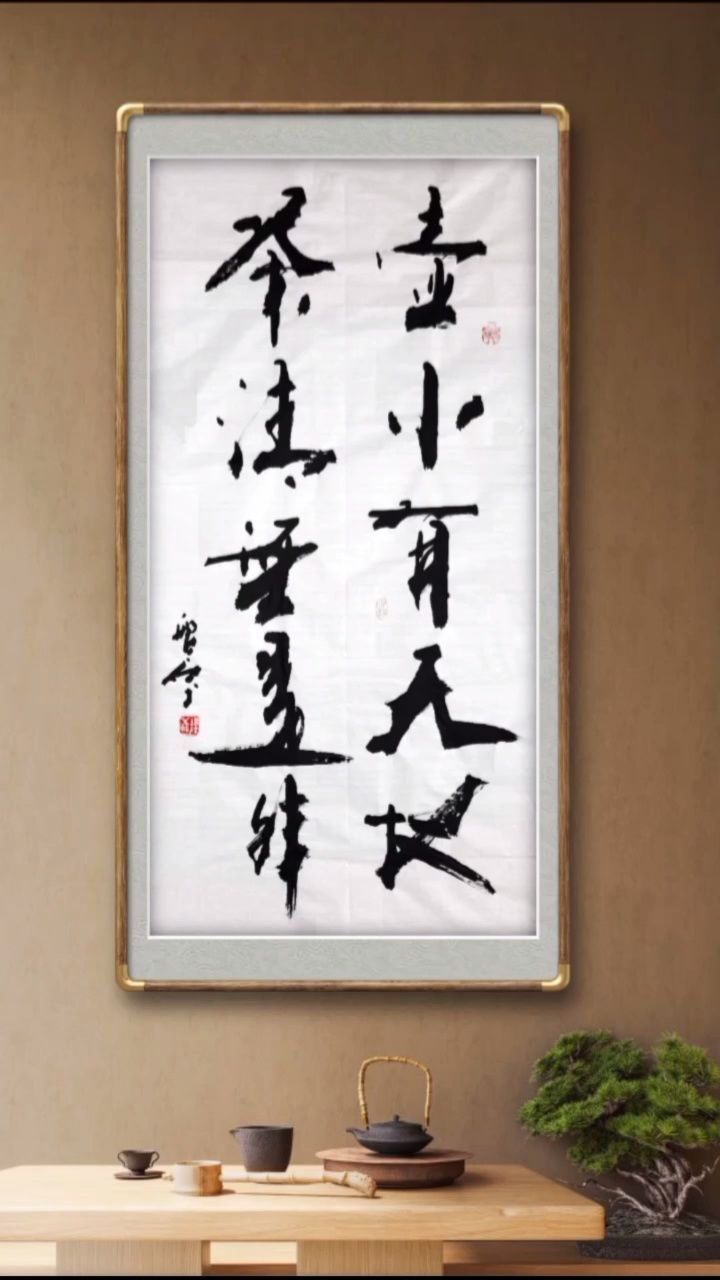 壶小有天地
茶無是非